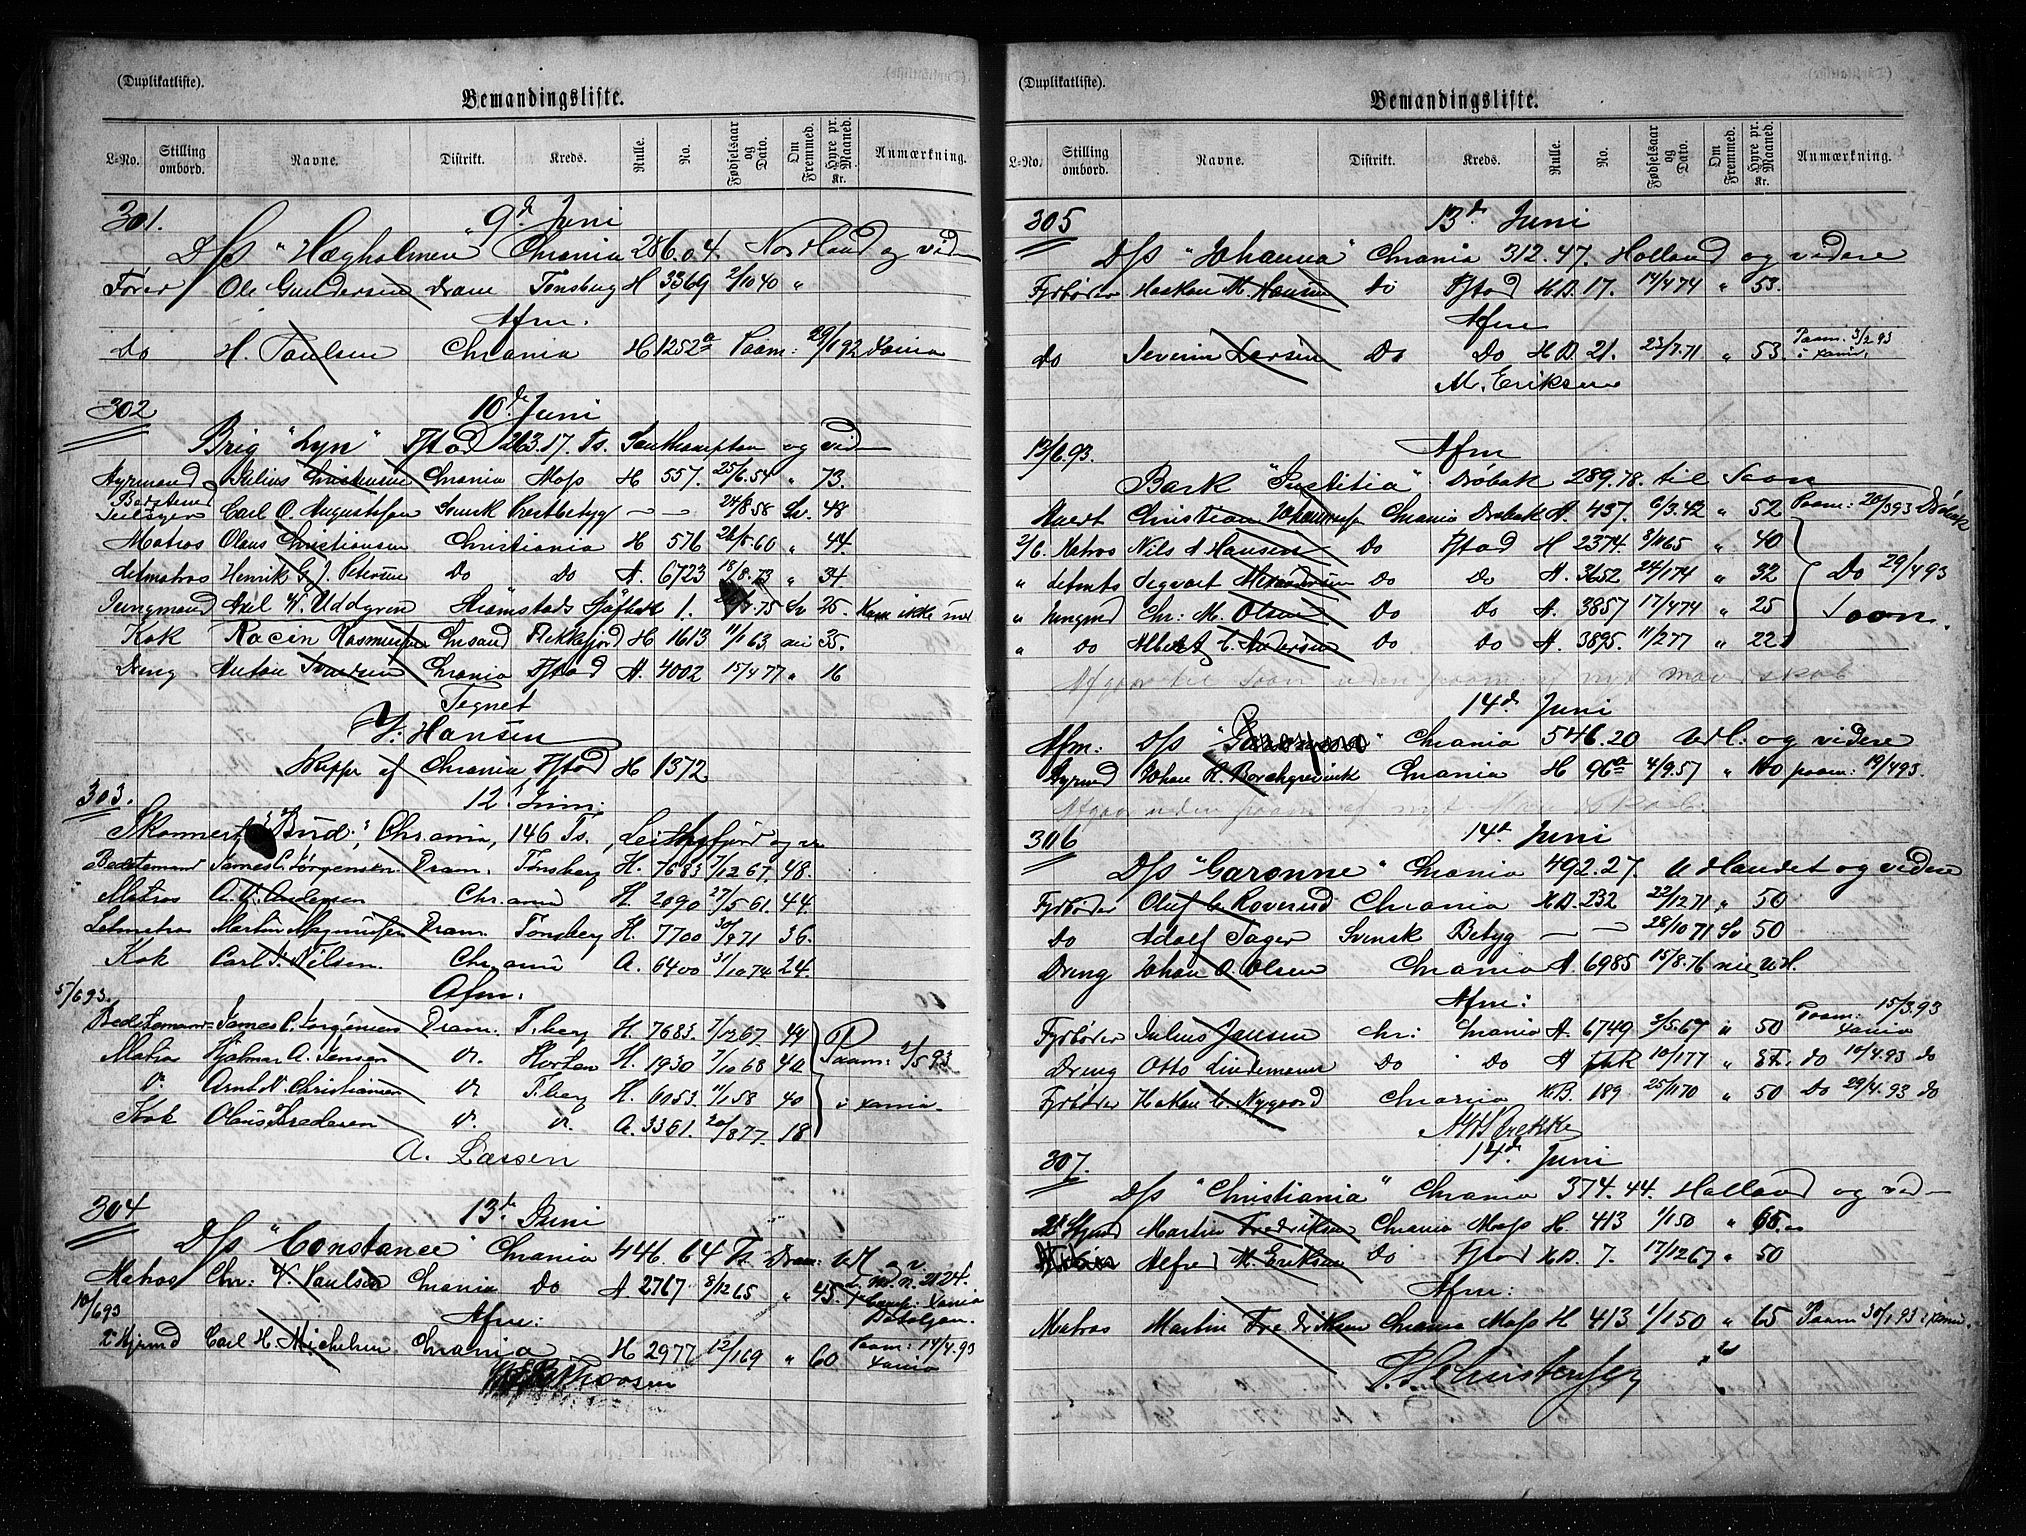 (Duplikatliste).
Bemandingsliste.
L-No. Stilling ombord. Navne. Distrikt. Kreds. Rulle. No. Fødselsaar og Dato. Om Fremmed. Hyre pr. Maaned. Kr. Anmærkning.
301. 9d Juni
D/S "Hægholmen" Chrania 286.04. Nordland og vid
Fører Ole Gundersen Dram Tønsberg H 3369 2/10 40 "
Afm.
do H. Paulsen Chrania H 1252a Paam: 29/1 92 Xania
302 10d Juni
Brig "Lyn" Fstad 263.17. Ts. Southampton og vid
Styrmand Julius Christensen Chrania Moss H 557. 25/6.54 " 73.
Bedstemd Seilsyer Carl O. Augustsson Svensk Prestbetyg — — 24/8 58 Sv. 48
Matros Olaus Christiansen Christiania H 576 26/5 60 " 44.
Letmatros Henrik G. J. Petersen Do Do A. 6723 18/8.73 " 34
Jungmand Axel W. Uddgren Strömstads Sjöfhus 1. 75 Sv 25. Kom ikke med
Kok Racin Rasmussen Chrsand Flekkefjord H 1613 11/1 63 nei 35.
Dreng Anton Chrania Fstad A. 4002 15/4 77 " 16
Tegnet
J. Hansen
Skipper af Chrania Fstad H 1372
303. 12d Juni.
Skonnert "Bud", Chrania, 146 Ts., Leith og v.
Bedstemand James C. Jørgensen. Dram. Tønsberg H. 7683 7/12 67. 48.
Matros A. A. Andersen Chrania H. 2090 27/5 61. 44.
Letmatros Martin Magnussen Dram. Tønsberg H. 7700 30/9 71 36.
Kok Carl J. Nilsen. Chrania A. 6400 31/10 74 24.
5/6 93. Afm:
Bedstemand James C. Jørgensen Dram. T.berg H. 7683. 7/12 67. 44
Matros Hjalmar A. Jensen Do Horten H. 1930 7/10 68 40 Paam: 2/5 93
Do Arnt N. Christiansen Do T.berg H. 6053. 11/1 58 40 i Xania.
Kok Olaus Fredersen Do Do A. 3361. 20/8 77. 18
A. Larssen
304 13de Juni
D/S "Constance" Chrania 446.64 Ts. Dram: Udl. og v.
Matros Chr: V. Paulsen Chrania Do A 2767 8/12 65 " 45.
10/6 93 Afm:
2 Styrmd Carl H. Michelsen Chrania H 2977 12/1 69 " 60 Paam: 14/4.93 Xania
Thorsen
(Duplikatliste).
Bemandingsliste.
L-No. Stilling ombord. Navne. Distrikt. Kreds. Rulle. No. Fødselsaar og Dato. Om Fremmed. Hyre pr. Maaned. Kr. Anmærkning.
305 13d Juni
D/S "Johanna" Chrania 312.47. Holland og videre
Fyrbøder Haakon M. Hansen Do Fstad K.B. 17. 14/4 74 " 53.
Afm
do Severin Larsen Do Do K.B. 21. 23/7.71 " 53. Paam: 3/2.93 i Xania.
M. Eriksen
12/6.93. Afm
Bark "Lætitia" Drøbak 289.78. til Soon
Stuert Christian Johannessen Chrania Drøbak A. 437. 6/3.42 " 52 Paam: 20/3 93 Drøbak
2/6. Matros Nils A Hansen Do Fstad H 2374. 8/11 65 " 40
" Letmts Sigvart Alexandersen Do Do A. 3652 24/1 74 " 32 Do 29/4 93
" Jungmd Chr: M. Olsen Do Do A. 3857 17/4 74 " 25 Soon.
" do Albert C. Andersen Do Do A. 3895. 11/2 77 " 22
Afgaar til Soon uden paam: af nyt mandskab
14d Juni
Afm: D/S Chrania 546.20 Udl: og videre
Styrmd Johan R. Borchgrevink Chrania H 96a 4/9.57 " 100 paam: 19/4 93.
Afgaar uden paam: af nyt Mandskab.
306 14d Juni
D/S "Garonne" Chrania 492.27. Udlandet og videre
Fyrbøder Oluf C. Roverud Chrania K.B. 232 22/12 71 " 50
do Adolf Tager Svensk Betyg — — 28/10 71 Sv 50
Dreng Johan O. Olsen Chrania A 6985 15/8.76 nei U.H.
Afm:
Fyrbøder Julius Jansen Chr: Chrania A 6749 2/5.67 " 50 Paam: 15/3.93 Xania
Dreng Otto Lindemann Do Do A 10/1 77 " do 10/4.93 do
Fyrbøder Hakon C. Nygaard Chrania K.B. 189 25/11 70 " 50 Do 29/4.93 do
14d Juni
307.
D/S "Christiania" Chrania 374.44. Holland og vid
2 Styrmd Martin Fredriksen Chrania Moss H. 413 1/1 50 " 65
Alfred M. Eriksen Do Fstad K.B. 7. 17/12 67 " 50
Afm:
Matros Martin Fredriksen Chrania Moss H 413 1/1 50 " 65 Paam 30/1.93 i Xania.
Christensen